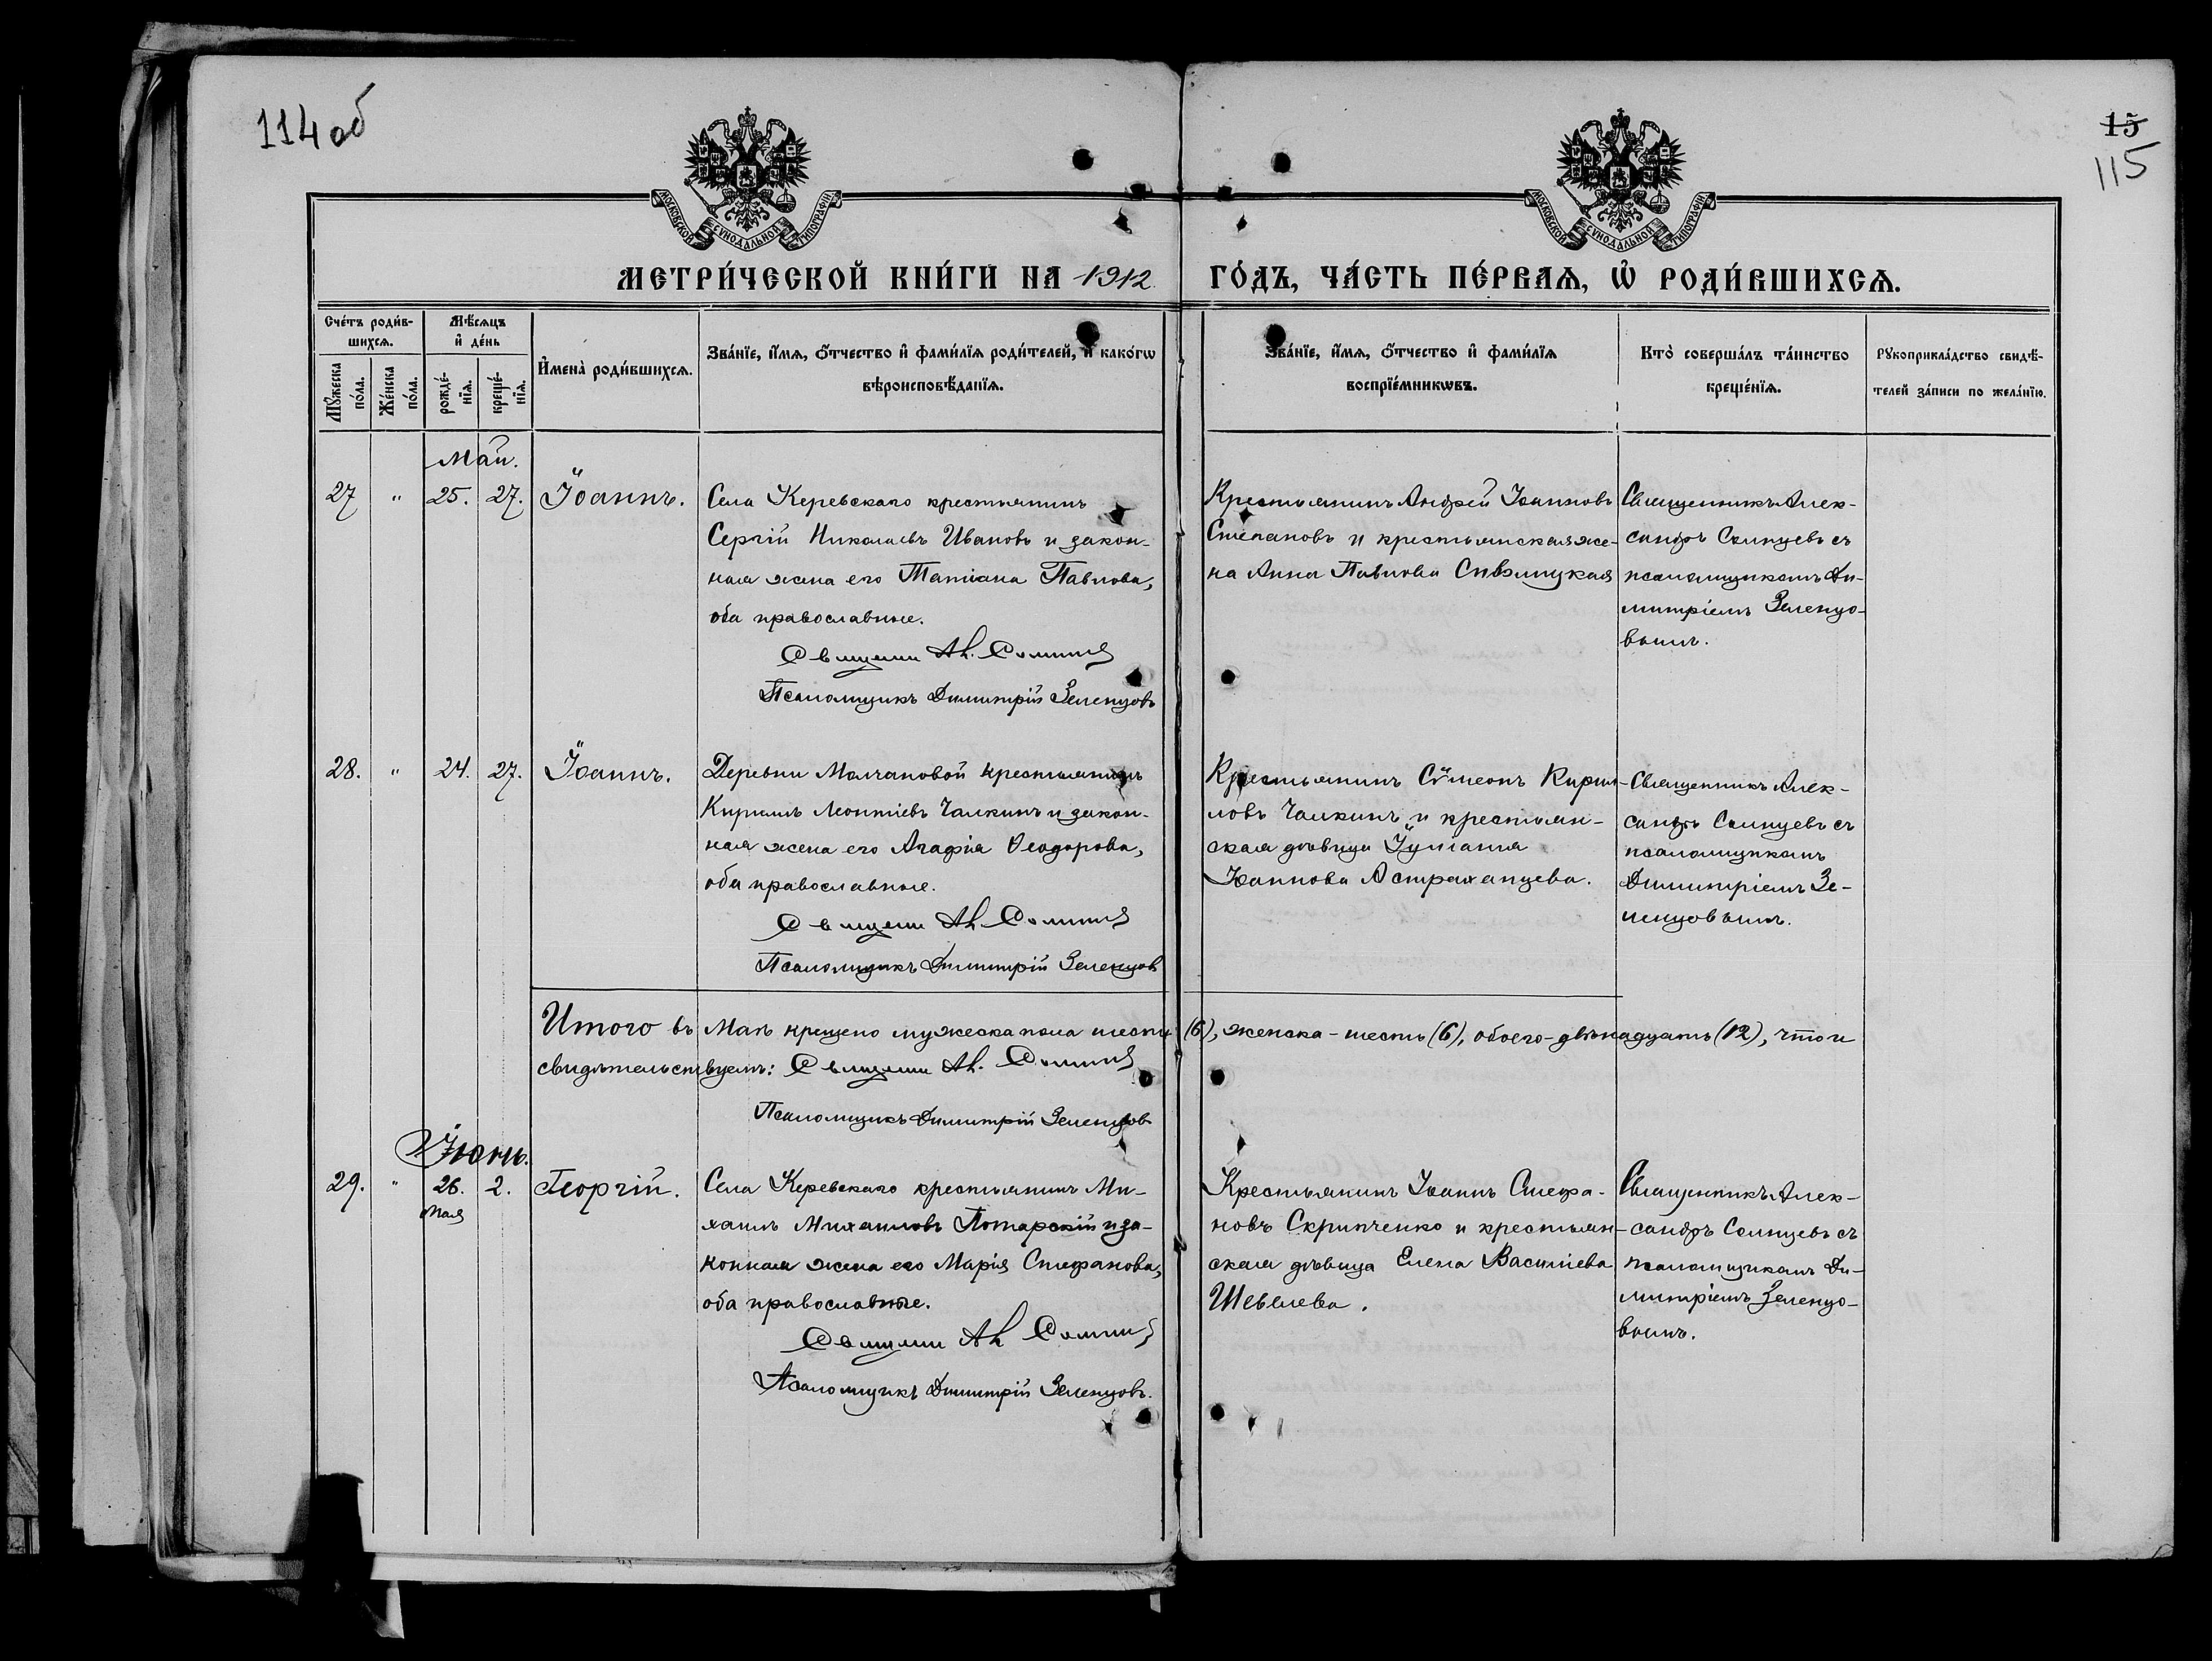 114 об
15
115
МОСКОВСКОЙ СУНОДАЛЬНОЙ ТИПОГРАФІИ
МОСКОВСКОЙ СУНОДАЛЬНОЙ ТИПОГРАФІИ
МЕТРИ́ЧЕСКОЙ КНИ́ГИ НА 1912 ГО́ДЪ, ЧА́СТЬ ПЕ́РВАѦ, Ѡ҆ РОДИ́ВШИХСѦ.
Сче́тъ роди́в-
шихсѧ.
Мꙋ́жеска по́ла.
Же́нска по́ла.
Мѣ́сѧцъ
и҆ де́нь
рожде́-
нїѧ.
креще́-
нїѧ.
И҆мена̀ роди́вшихсѧ.
Зва́нїе, и҆́мѧ, ѻ҆́тчество и҆ фами́лїѧ роди́телей, и҆ како́гѡ
вѣроисповѣ́данїѧ.
Зва́нїе, и҆́мѧ, ѻ҆́тчество и҆ фами́лїѧ
воспрїе́мникѡвъ.
Кто̀ соверша́лъ та́инство
креще́нїѧ.
Рꙋкоприкла́дство свидѣ́-
телей за́писи по жела́нїю.
Май.
27 " 25. 27. Іоаннъ.
Села Керевскаго крестьянинъ
Сергій Николаевъ Ивановъ и закон-
ная жена его Татіана Павлова,
оба православные.
Священ Ал. Солнцев
Псаломщикъ Димитрій Зеленцовъ
Крестьянинъ Андрей Іоанновъ
Степановъ и крестьянская же-
на Анна Павлова
Священникъ Алек-
сандръ Солнцевъ съ
псаломщикомъ Ди-
митріемъ Зеленцо-
вымъ.
28. " 24. 27. Іоаннъ.
Деревни Молчановой крестьянинъ
Кириллъ Леонтіевъ Чалкинъ и закон-
ная жена его Агафія Ѳеодорова,
оба православные.
Священ Ал. Солнцев
Псаломщикъ Димитрій Зеленцов
Крестьянинъ Сѵмеонъ Кирил-
ловъ Чалкинъ и крестьян-
ская дѣвица Іуліанія
Іоаннова Астраханцева.
Священникъ Алек-
сандръ Солнцевъ съ
псаломщикомъ
Димитріемъ Зе-
ленцовымъ.
Итого въ Маѣ крещено мужеска пола шесть (6), женска - шесть (6), обоего - двѣнадцать (12), что и
свидѣтельствуемъ: Священ Ал. Солнцев
Псаломщикъ Димитрій Зеленцов
Іюнь.
29. " 26. 2. Георгій.
Мая
Села Керевскаго крестьянинъ Ми-
хаилъ Михаиловъ Потарскій и за-
конная жена его Марія Стефанова,
оба православные.
Священ Ал Солнцев
Псаломщикъ Димитрій Зеленцовъ.
Крестьянинъ Іоаннъ Стефа-
новъ Скрипченко и крестьян-
ская дѣвица Елена Василіева
Шевелева.
Священникъ Алек-
сандръ Солнцевъ съ
псаломщикомъ Ди-
митріемъ Зеленцо-
вымъ.